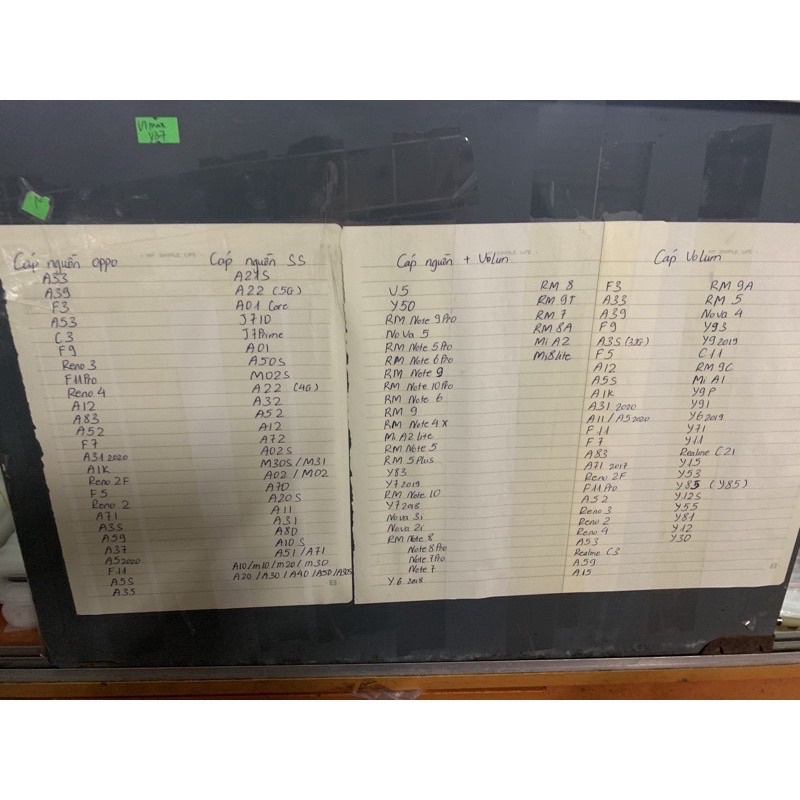 V7max
Y37
MY SIMPLE LIFE
Cáp nguồn oppo
A33
A39
F3
A53
C3
F9
Reno 3
F11Pro
Reno 4
A12
A83
A52
F7
A31 2020
A1K
Reno 2F
F5
Reno 2
A71
A3S
A59
A37
A52020
F11
A5S
A35
Cáp nguồn SS
A21S
A22 (5G)
A01 Core
J710
J7Prime
A01
A50S
M02S
A22 (4G)
A32
A52
A12
A72
A02S
M30S / M31
A02 / M02
A70
A20S
A11
A31
A80
A10S
A51 / A71
A10/m10/m20/m30
A20/A30/A40/A50/A30S
Cáp nguồn + Volum
V5
Y50
RM Note 9Pro
NoVa 5
RM Note 5Pro
RM Note 6Pro
RM Note 9
RM Note 10Pro
RM Note 6
RM 9
RM Note 4X
Mi A2 lite
RM Note 5
RM 5 Plus
Y83
Y7 2019
RM Note 10
Y7 2018
Nova 3i
Nova 2i
RM Note 8
Note 8Pro
Note 7Pro
Note 7
Y6 2018
RM 8
RM 9T
RM 7
RM 8A
Mi A2
Mi8lite
MY SIMPLE LIFE
Cáp Volum
F3
A33
A39
F9
A3S
F5
A12
A5S
A1K
A31 2020
A11/A5 2020
F11
F7
A83
A71 2017
Reno 2F
F11 Pro
A52
Reno 3
Reno 2
Reno 4
A53
Realme C3
A59
A15
RM 9A
RM 5
Nova 4
Y93
Y9 2019
C11
RM 9C
Mi A1
Y9P
Y91
Y6 2019
Y71
Y11
Realme C21
Y15
Y53
Y85 (Y85)
Y12S
Y55
Y81
Y12
Y30